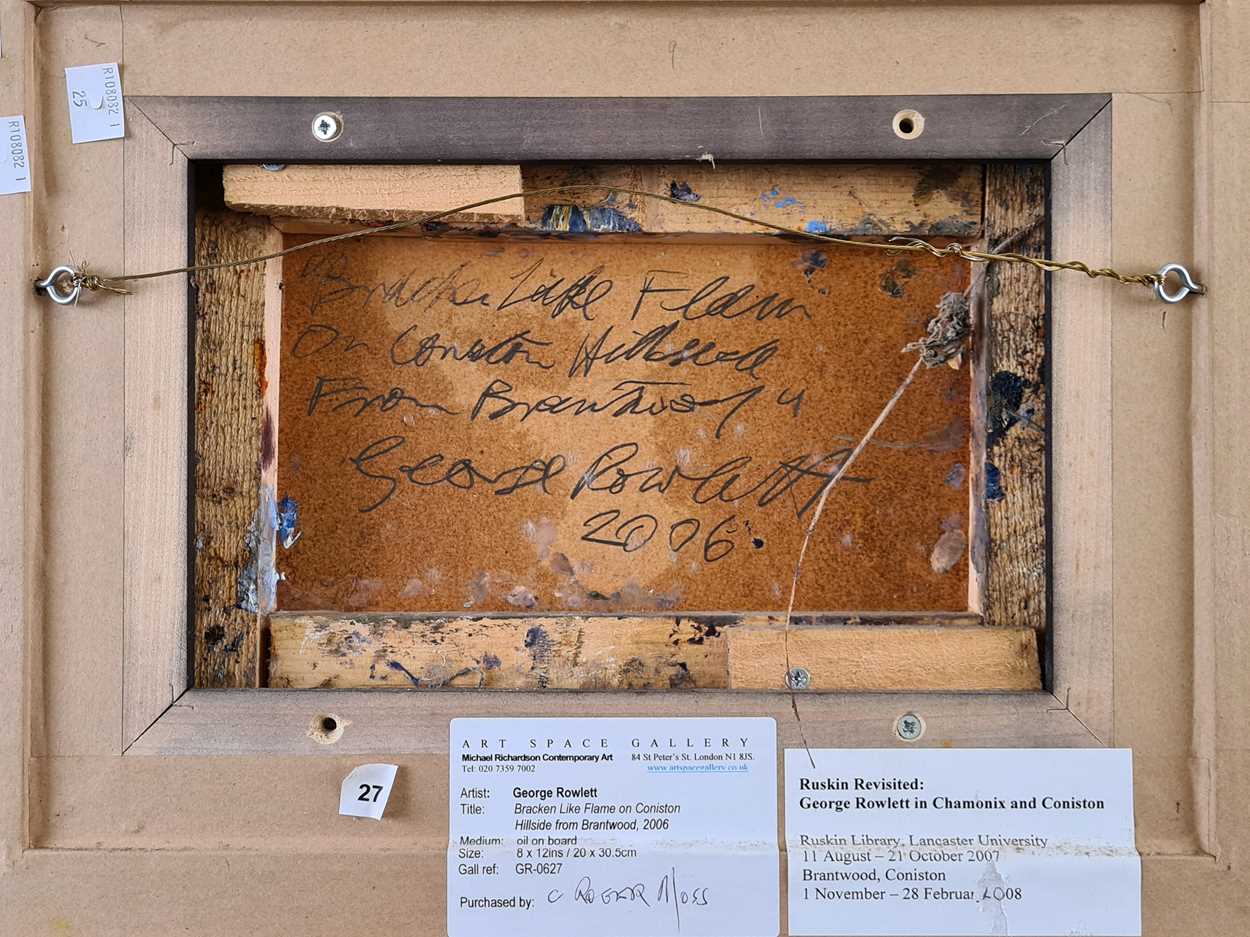 R108032 1
25
R108032 1
"Bracken Like Flame
On Coniston Hillside
From Brantwood"
George Rowlett
2006.
27
ART SPACE GALLERY
Michael Richardson Contemporary Art
84 St Peter's St. London N1 8JS.
Tel: 020 7359 7002
www.artspacegallery.co.uk
Artist: George Rowlett
Title: Bracken Like Flame on Coniston
Hillside from Brantwood, 2006
Medium: oil on board
Size: 8 x 12ins / 20 x 30.5cm
Gall ref: GR-0627
Purchased by: C ROGER MOSS
Ruskin Revisited:
George Rowlett in Chamonix and Coniston
Ruskin Library, Lancaster University
11 August – 21 October 2007
Brantwood, Coniston
1 November – 28 February 2008